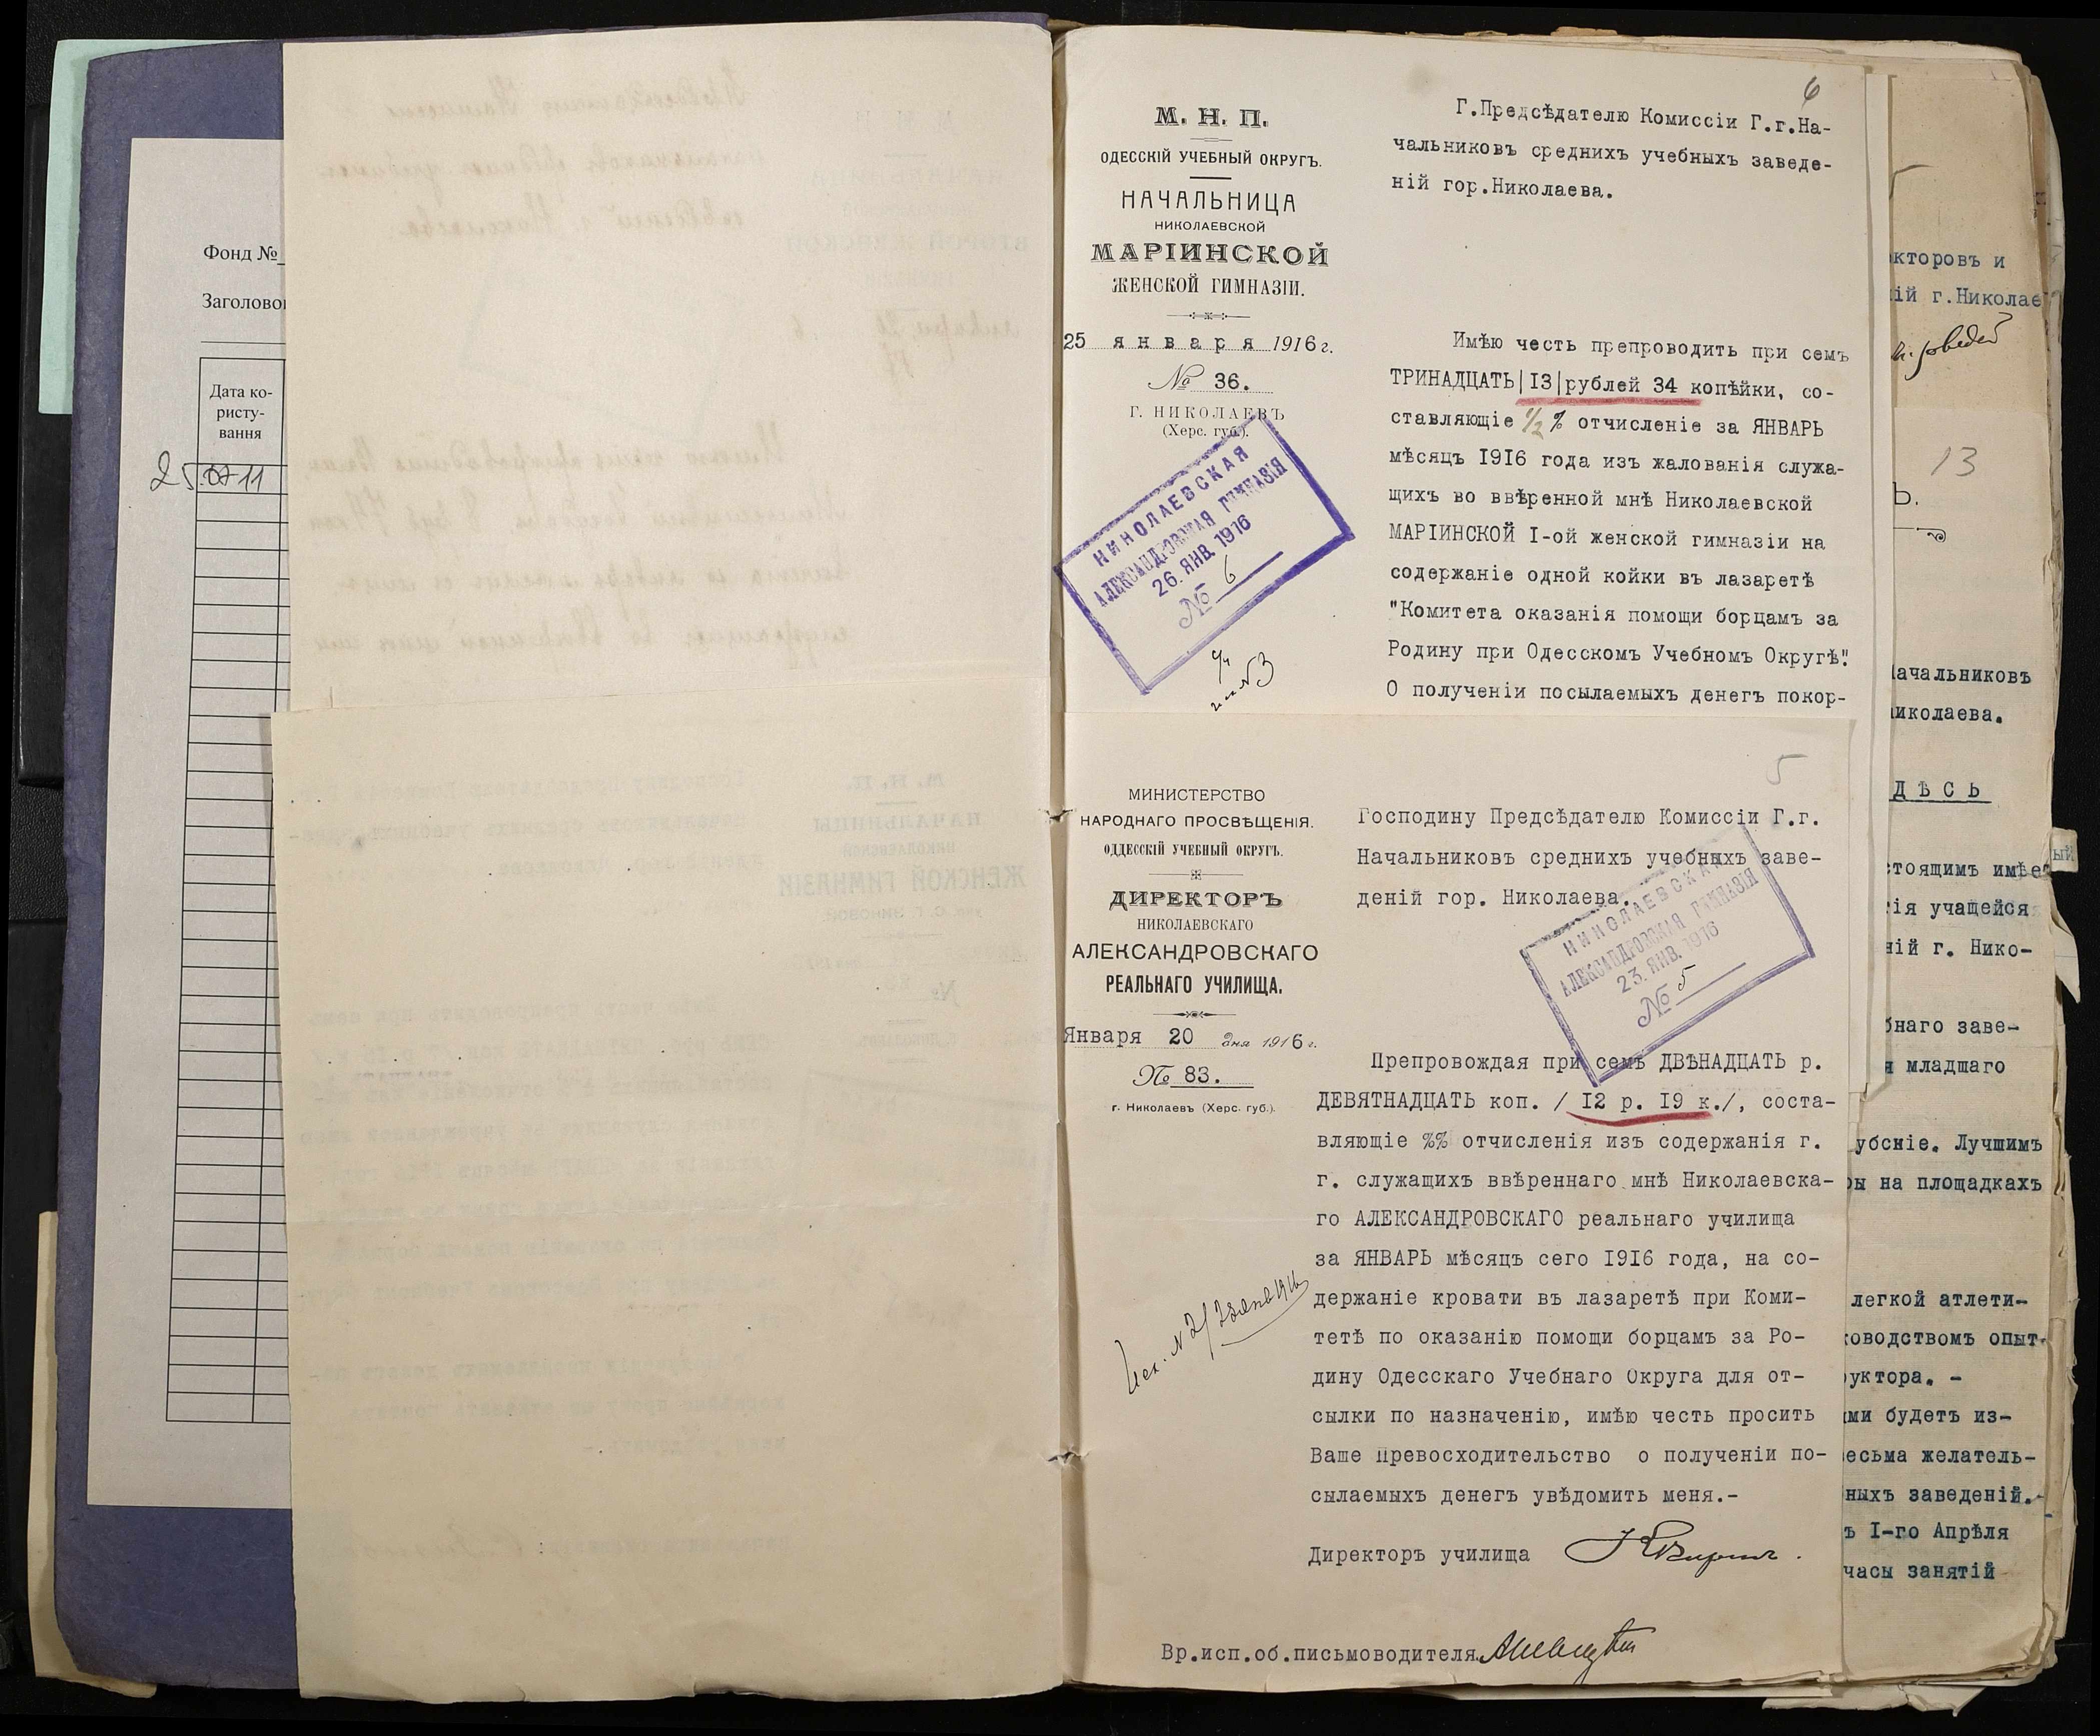 Фонд №
Заголово
Дата ко-
ристу-
вання
25.07 11
6
М. Н. П.
ОДЕССКІЙ УЧЕБНЫЙ ОКРУГЪ.
НАЧАЛЬНИЦА
НИКОЛАЕВСКОЙ
МАРІИНСКОЙ
ЖЕНСКОЙ ГИМНАЗІИ.
25 января 1916 г.
№ 36.
Г. НИКОЛАЕВЪ
(Херс. губ.).
НИКОЛАЕВСКАЯ
АЛЕКСАНДРОВСКАЯ ГИМНАЗІЯ
26. ЯНВ. 1916
№ 6
№3
Г.Предсѣдателю Комиссіи Г.г.На-
чальниковъ среднихъ учебныхъ заведе-
ній гор.Николаева.
Имѣю честь препроводить при семъ
ТРИНАДЦАТЬ|13|рублей 34 копѣйки, со-
ставляющіе 1/2 % отчисленіе за ЯНВАРЬ
мѣсяцъ 1916 года изъ жалованія служа-
щихъ во ввѣренной мнѣ Николаевской
МАРІИНСКОЙ I-ой женской гимназіи на
содержаніе одной койки въ лазаретѣ
"Комитета оказанія помощи борцамъ за
Родину при Одесскомъ Учебномъ Округѣ".
О полученіи посылаемыхъ денегъ покор-
5
МИНИСТЕРСТВО
НАРОДНАГО ПРОСВѢЩЕНІЯ.
ОДДЕССКІЙ УЧЕБНЫЙ ОКРУГЪ.
ДИРЕКТОРЪ
НИКОЛАЕВСКАГО
АЛЕКСАНДРОВСКАГО
РЕАЛЬНАГО УЧИЛИЩА.
Января 20 дня 1916 г.
№ 83.
г. Николаевъ (Херс. губ.).
Исх. №2/28 янв 1916
Господину Предсѣдателю Комиссіи Г.г.
Начальниковъ среднихъ учебныхъ заве-
деній гор. Николаева.
НИКОЛАЕВСКАЯ
АЛЕКСАНДРОВСКАЯ ГИМНАЗІЯ
23. ЯНВ. 1916
№ 5
Препровождая при семъ ДВѢНАДЦАТЬ р.
ДЕВЯТНАДЦАТЬ коп. / 12 р. 19 к./, соста-
вляющіе %% отчисленія изъ содержанія г.
г. служащихъ ввѣреннаго мнѣ Николаевска-
го АЛЕКСАНДРОВСКАГО реальнаго училища
за ЯНВАРЬ мѣсяцъ сего 1916 года, на со-
держаніе кровати въ лазаретѣ при Коми-
тетѣ по оказанію помощи борцамъ за Ро-
дину Одесскаго Учебнаго Округа для от-
сылки по назначенію, имѣю честь просить
Ваше Превосходительство о полученіи по-
сылаемыхъ денегъ увѣдомить меня.-
Директоръ училища
Вр.исп.об.письмоводителя
кторовъ и
ій г.Николае
13
Ь.
ачальниковъ
иколаева.
ДѢСЬ
стоящимъ имѣе
ый
ія учащейся
ній г. Нико-
бнаго заве-
я младшаго
убскіе. Лучшимъ
ры на площадкахъ
легкой атлети-
ководствомъ опыт-
руктора. -
ими будетъ из-
весьма желатель-
ныхъ заведеній.-
ъ I-го Апрѣля
часы занятій